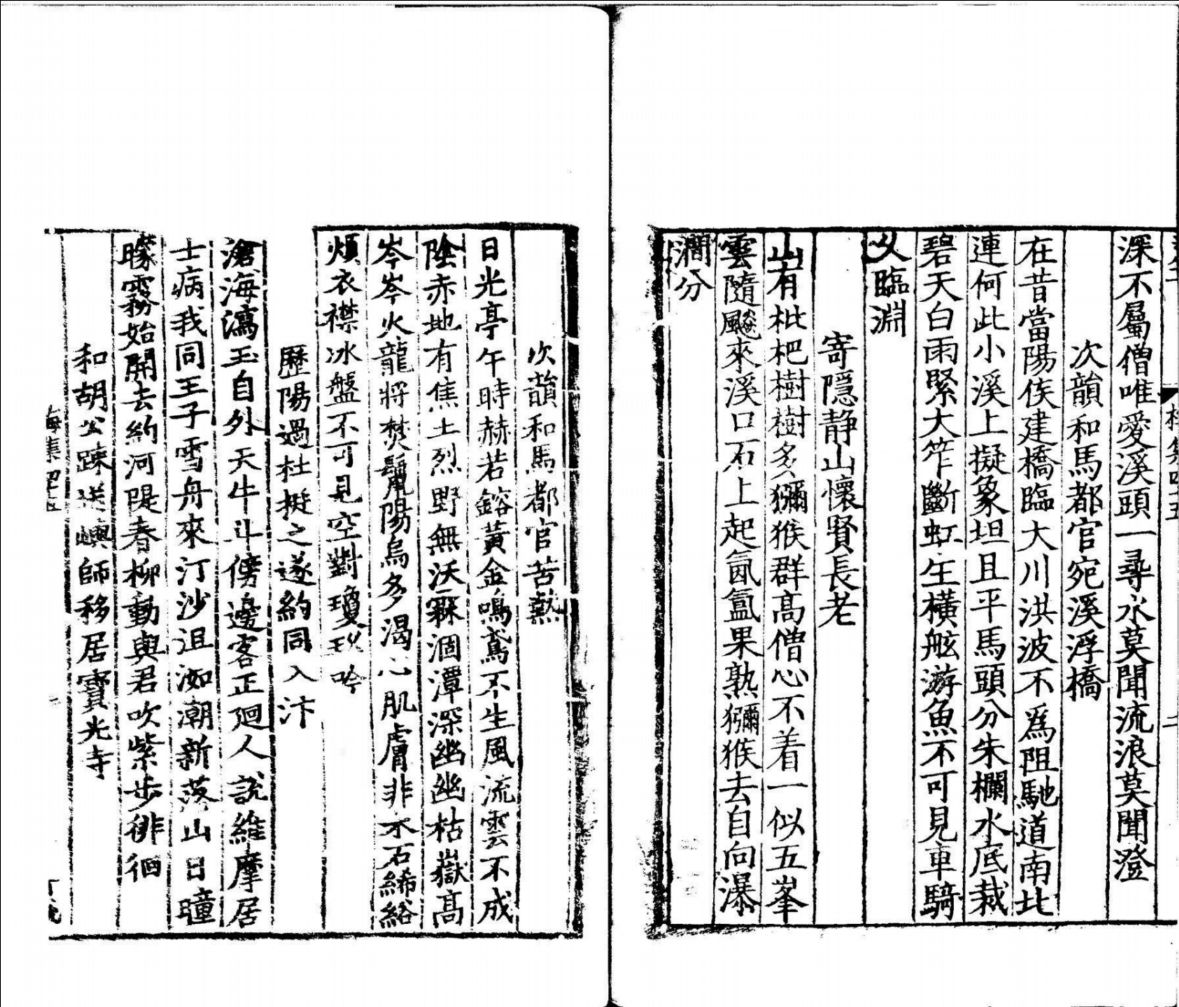 深不屬僧唯愛溪頭一尋水莫聞流浪莫聞澄
次韻和馬都官宛溪浮橋
在昔當陽侯建橋臨大川洪波不爲阻馳道南北
連何此小溪上擬象坦且平馬頭分朱欄水底裁
碧天白雨緊大笮斷虹生橫舷游魚不可見車騎
乆臨淵
寄隱静山懷賢長老
山有枇杷樹樹多獼猴群髙僧心不着一似五峯
雲隨飈來溪口石上起氤氳果熟獼猴去自向瀑
澗分
次韻和馬都官苦熱
日光亭午時赫若鎔黃金鳴鳶不生風流雲不成
陰赤地有焦土烈野無沃霖涸潭深幽幽枯嶽髙
岑岑火龍將焚鬛陽烏多渴心肌膚非木石絺綌
煩衣襟冰盤不可見空對瓊玖吟
歷陽過杜挺之遂約同入汴
滄海瀉玉自外天牛斗傍邊客正廻人說維摩居
士病我同王子雪舟來汀沙沮洳潮新落山日曈
曚霧始開去約河隄春柳動與君吹紫步徘徊
和胡公疎送嶼師移居寳光寺